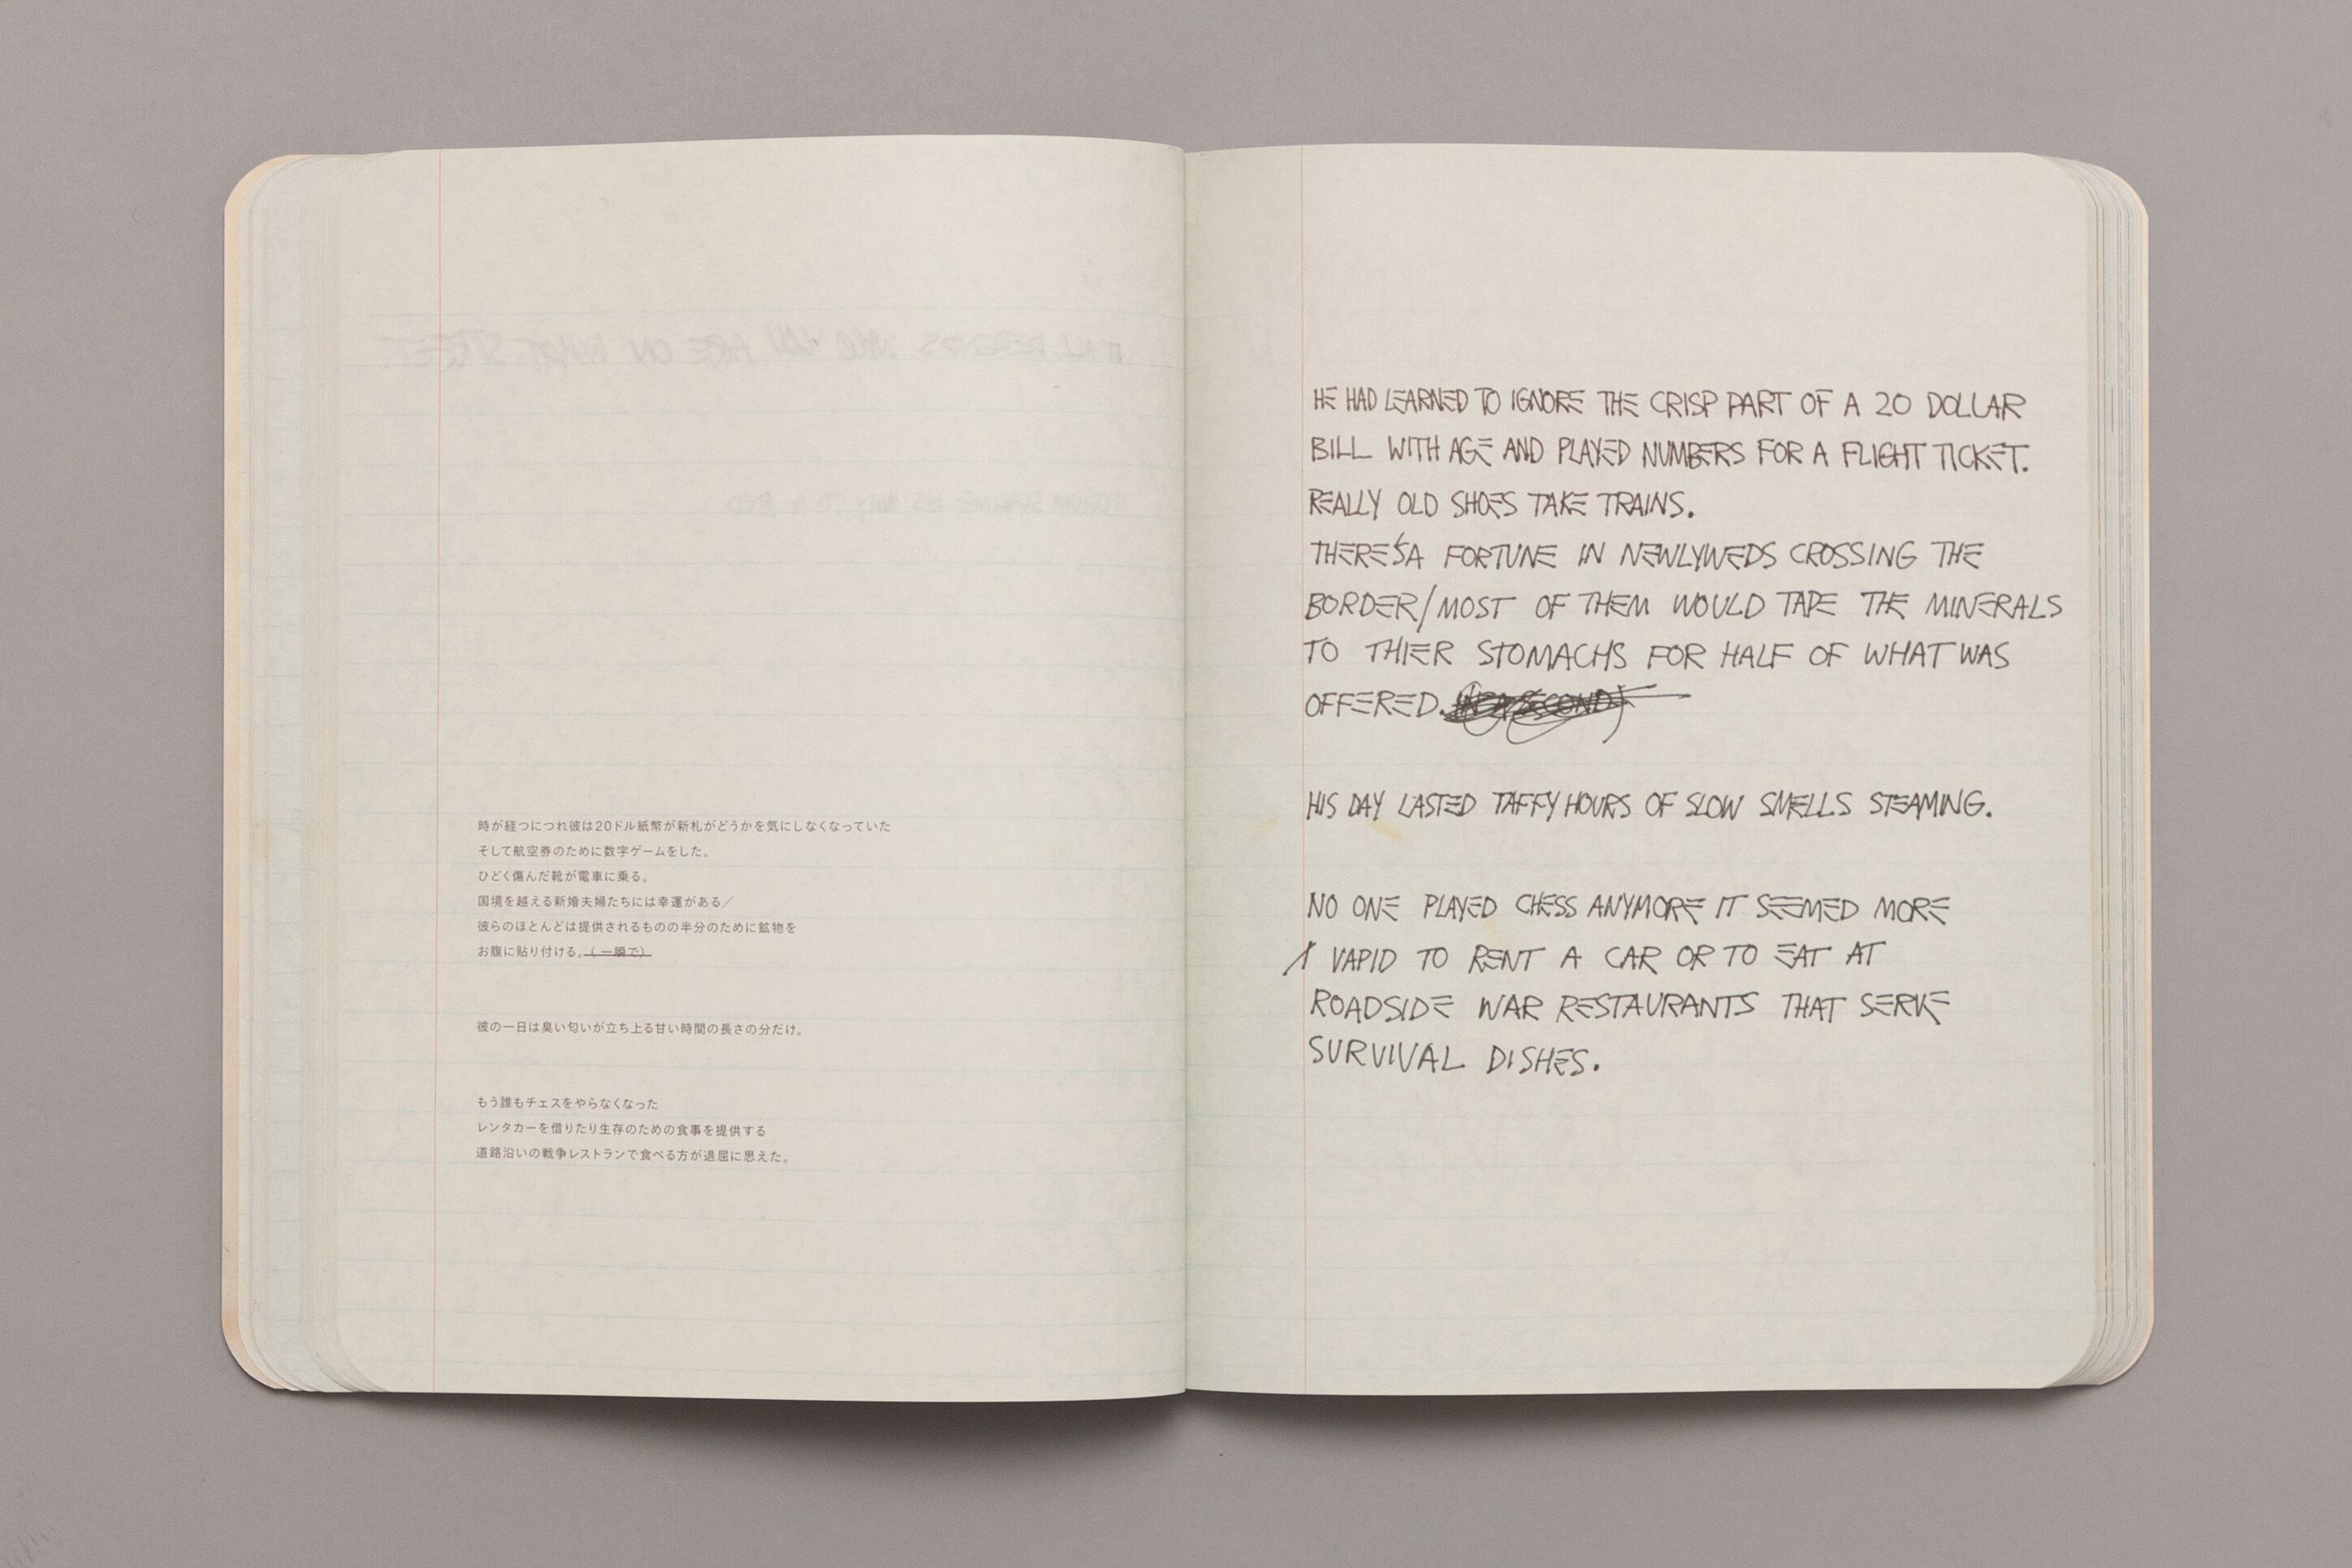 時が経つにつれ彼は20ドル紙幣が新札がどうかを気にしなくなっていた
そして航空券のために数字ゲームをした。
ひどく傷んだ靴が電車に乗る。
国境を越える新婚夫婦たちには幸運がある／
彼らのほとんどは提供されるものの半分のために鉱物を
お腹に貼り付ける。（一瞬で）
彼の一日は臭い匂いが立ち上る甘い時間の長さの分だけ。
もう誰もチェスをやらなくなった
レンタカーを借りたり生存のための食事を提供する
道路沿いの戦争レストランで食べる方が退屈に思えた。
HE HAD LEARNED TO IGNORE THE CRISP PART OF A 20 DOLLAR
BILL WITH AGE AND PLAYED NUMBERS FOR A FLIGHT TICKET.
REALLY OLD SHOES TAKE TRAINS.
THERE'S A FORTUNE IN NEWLYWEDS CROSSING THE
BORDER/MOST OF THEM WOULD TAPE THE MINERALS
TO THIER STOMACHS FOR HALF OF WHAT WAS
OFFERED.
HIS DAY LASTED TAFFY HOURS OF SLOW SMELLS STEAMING.
NO ONE PLAYED CHESS ANYMORE IT SEEMED MORE
VAPID TO RENT A CAR OR TO EAT AT
ROADSIDE WAR RESTAURANTS THAT SERVE
SURVIVAL DISHES.